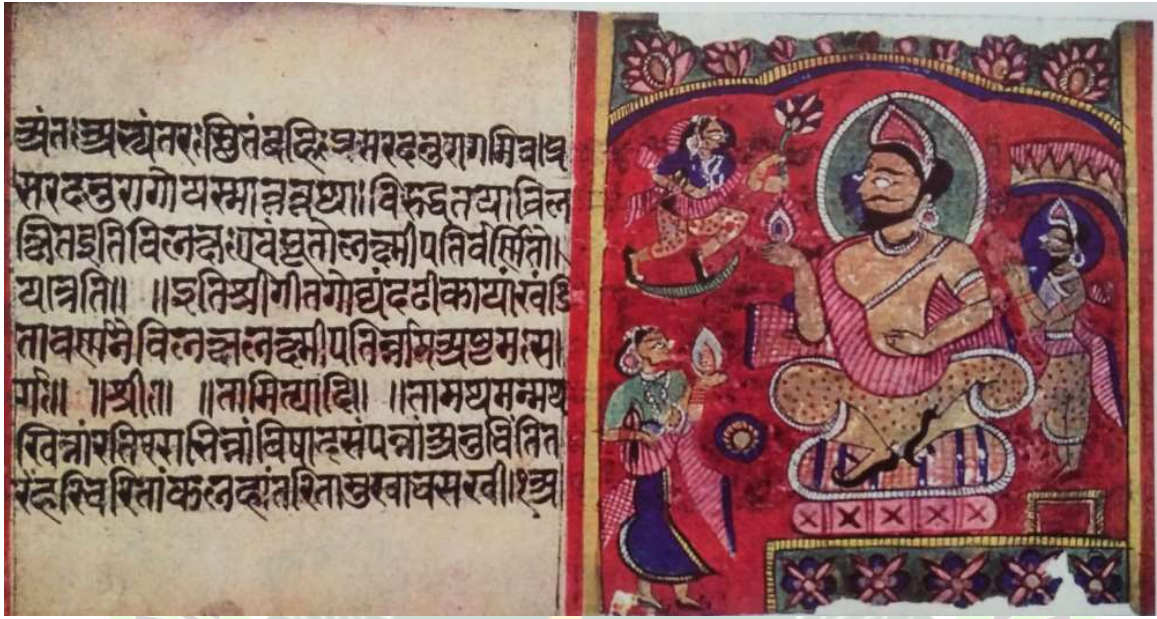 अंतःअभ्यंतरःस्थितंबहिःप्रसरदनुरागमिवाप्र
सरदनुरागोयस्मान्नतृप्या॥विरुद्धतयाविल
क्षितइतिविलक्षःएवंभूतोलक्ष्मीपतिर्वर्णितो।
यात्रति॥ ॥इतिश्रीगीतगोव्यंदटीकायां।खंडि
तावर्णनेविलक्षलक्ष्मीपतिर्न्नामअष्टमःस।
र्गः॥ ॥श्रीः॥ ॥तामित्यादि॥ ॥तामथमन्मथ
खिन्नांरतिपराभिन्नांविषादसंपन्नांअनुचिंतित
हरिचरितांकलहांतरितामुवाचसखी।१अ